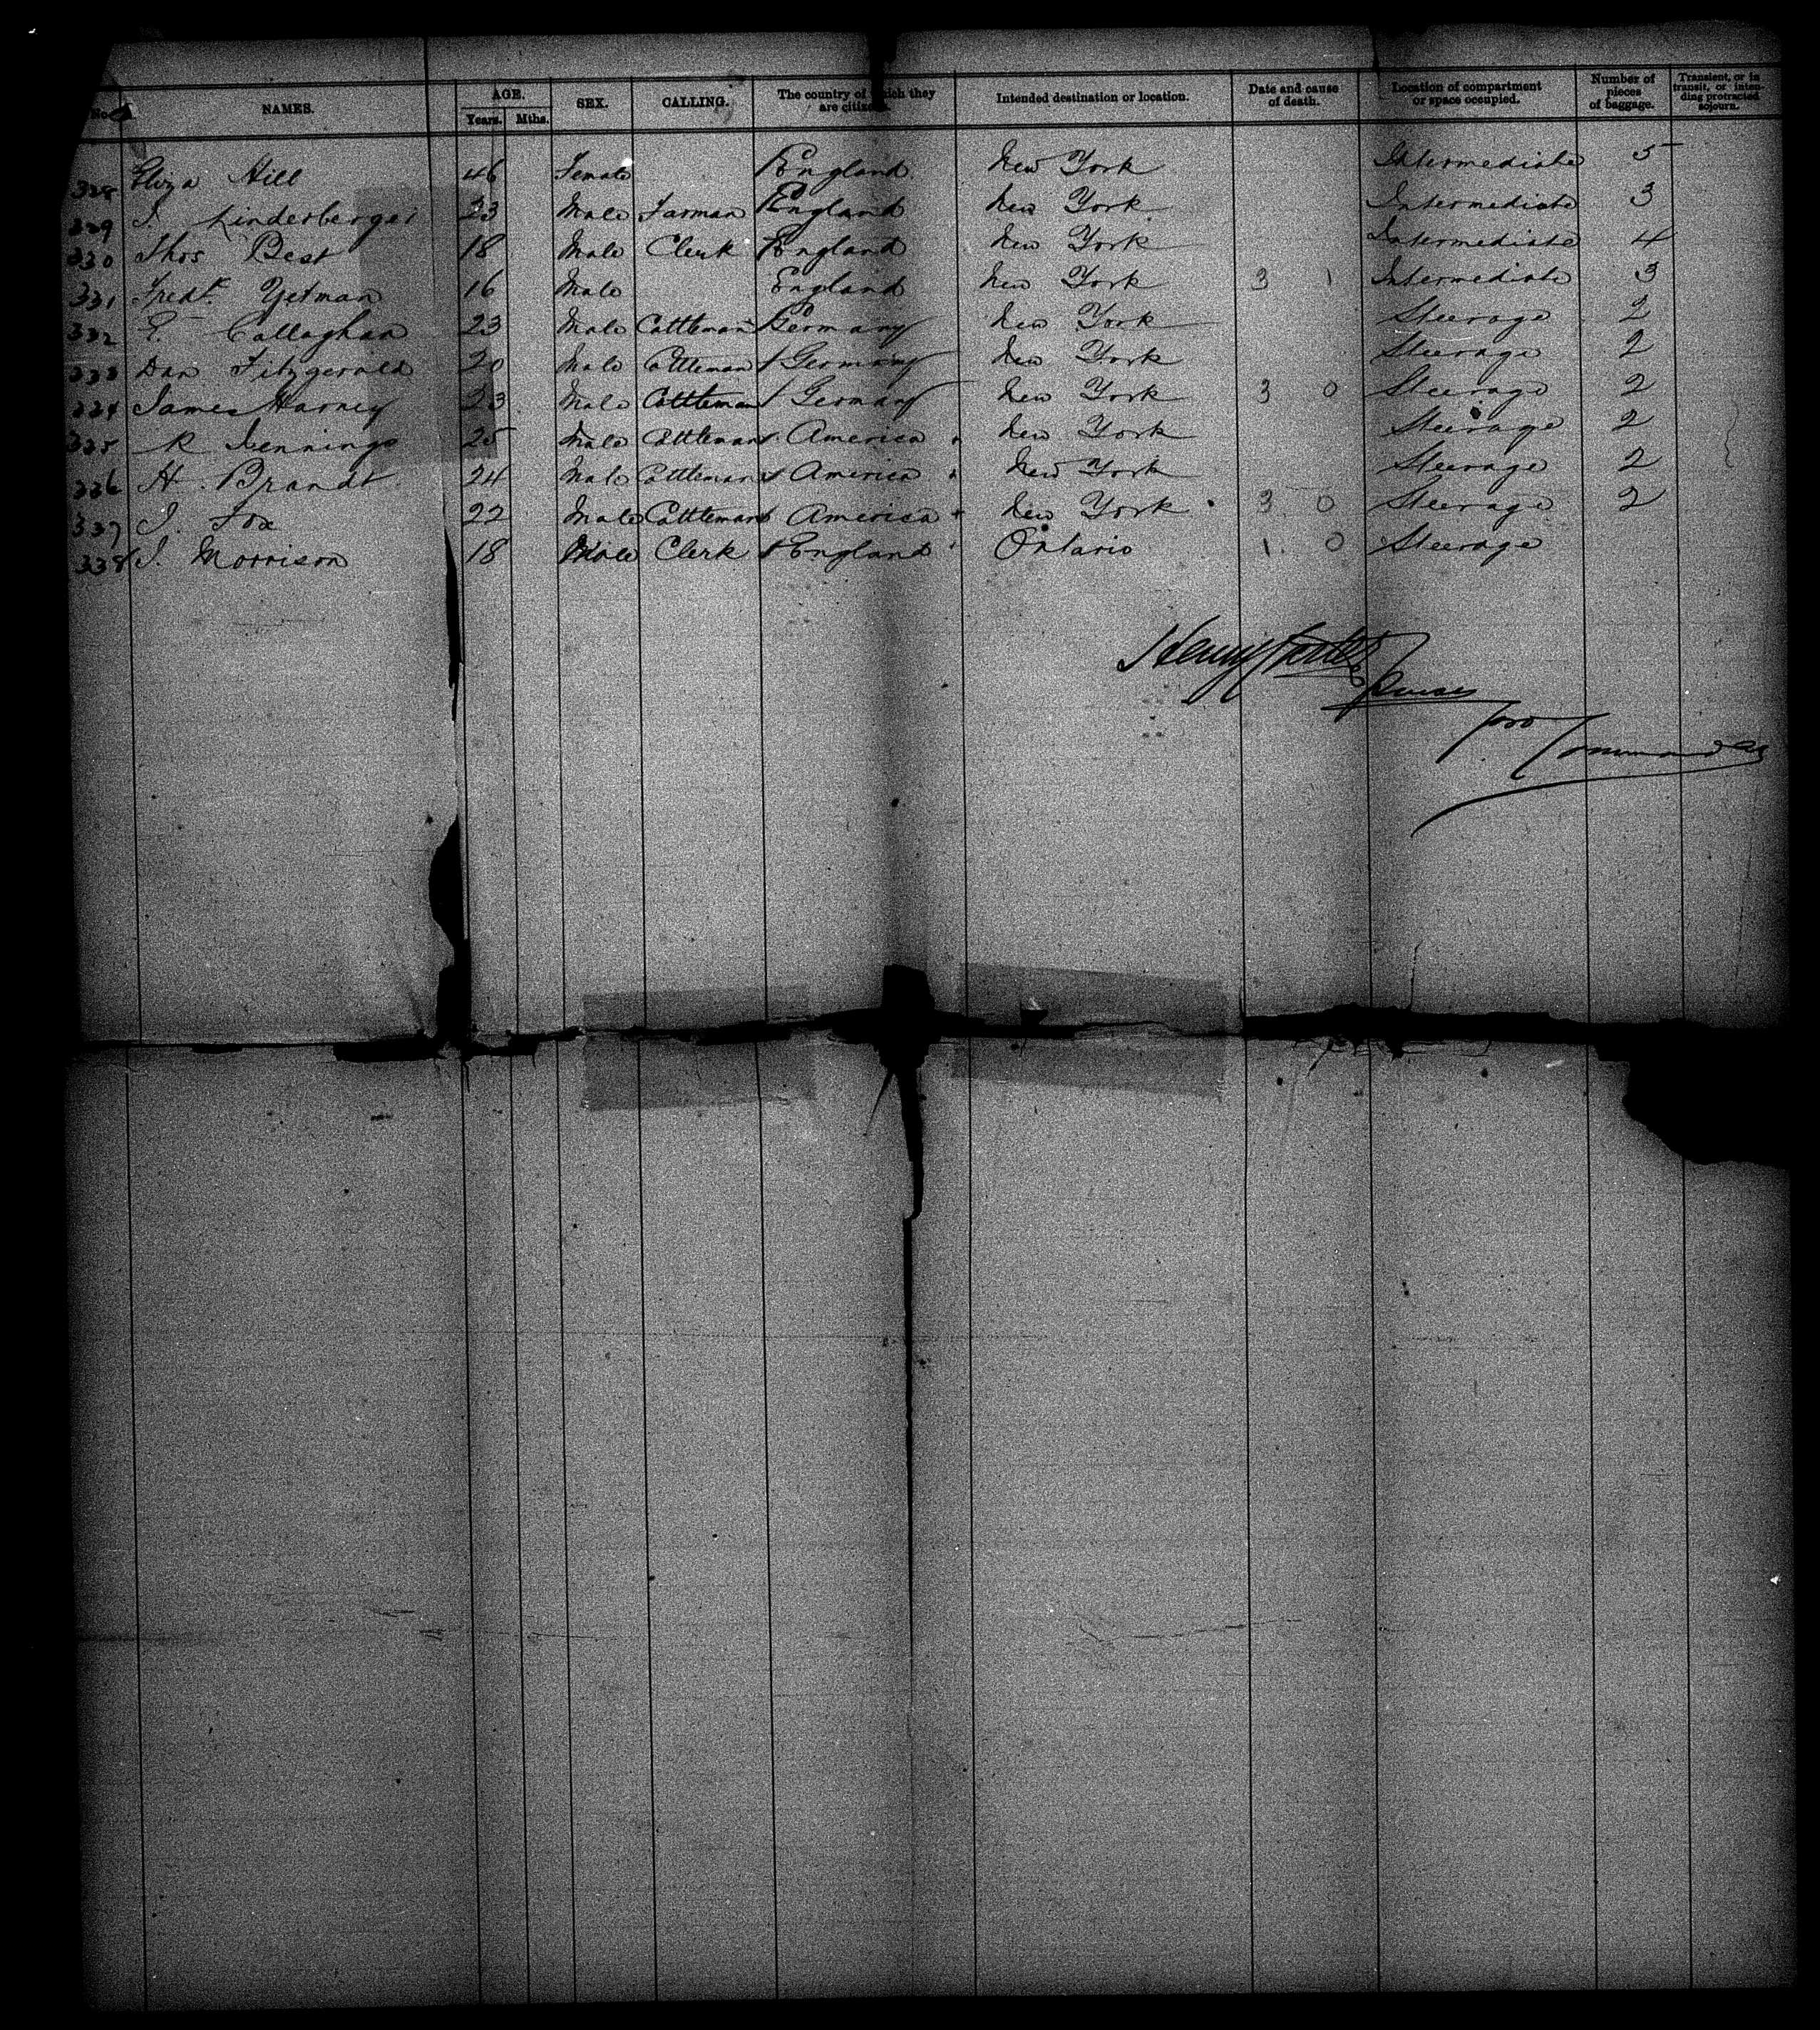 No. NAMES. AGE. Years. Mths. SEX. CALLING. The country of which they are citizens. Intended destination or location. Date and cause of death. Location of compartment or space occupied. Number of pieces of baggage. Transient, or in transit, or intending protracted sojourn.
328 Eliza Hill 46 Female England New York Intermediate 5
329 J. Linderberger 23 Male Farman England New York Intermediate 3
330 Thos Best 18 Male Clerk England New York Intermediate 4
331 Fredk. Yetman 16 Male England New York 3 1 Intermediate 3
332 E. Callaghan 23 Male Cattleman Germany New York Steerage 2
333 Dan Fitzgerald 20 Male Cattleman Germany New York Steerage 2
334 James Harney 23 Male Cattleman Germany New York 3 0 Steerage 2
335 R Jennings 25 Male Cattleman America New York Steerage 2
336 H. Brandt 24 Male Cattleman America New York Steerage 2
337 J. Fox 22 Male Cattleman America New York 3 0 Steerage 2
338 J. Morrison 18 Male Clerk England Ontario 1. 0 Steerage
Henry
Purser
pro Commander